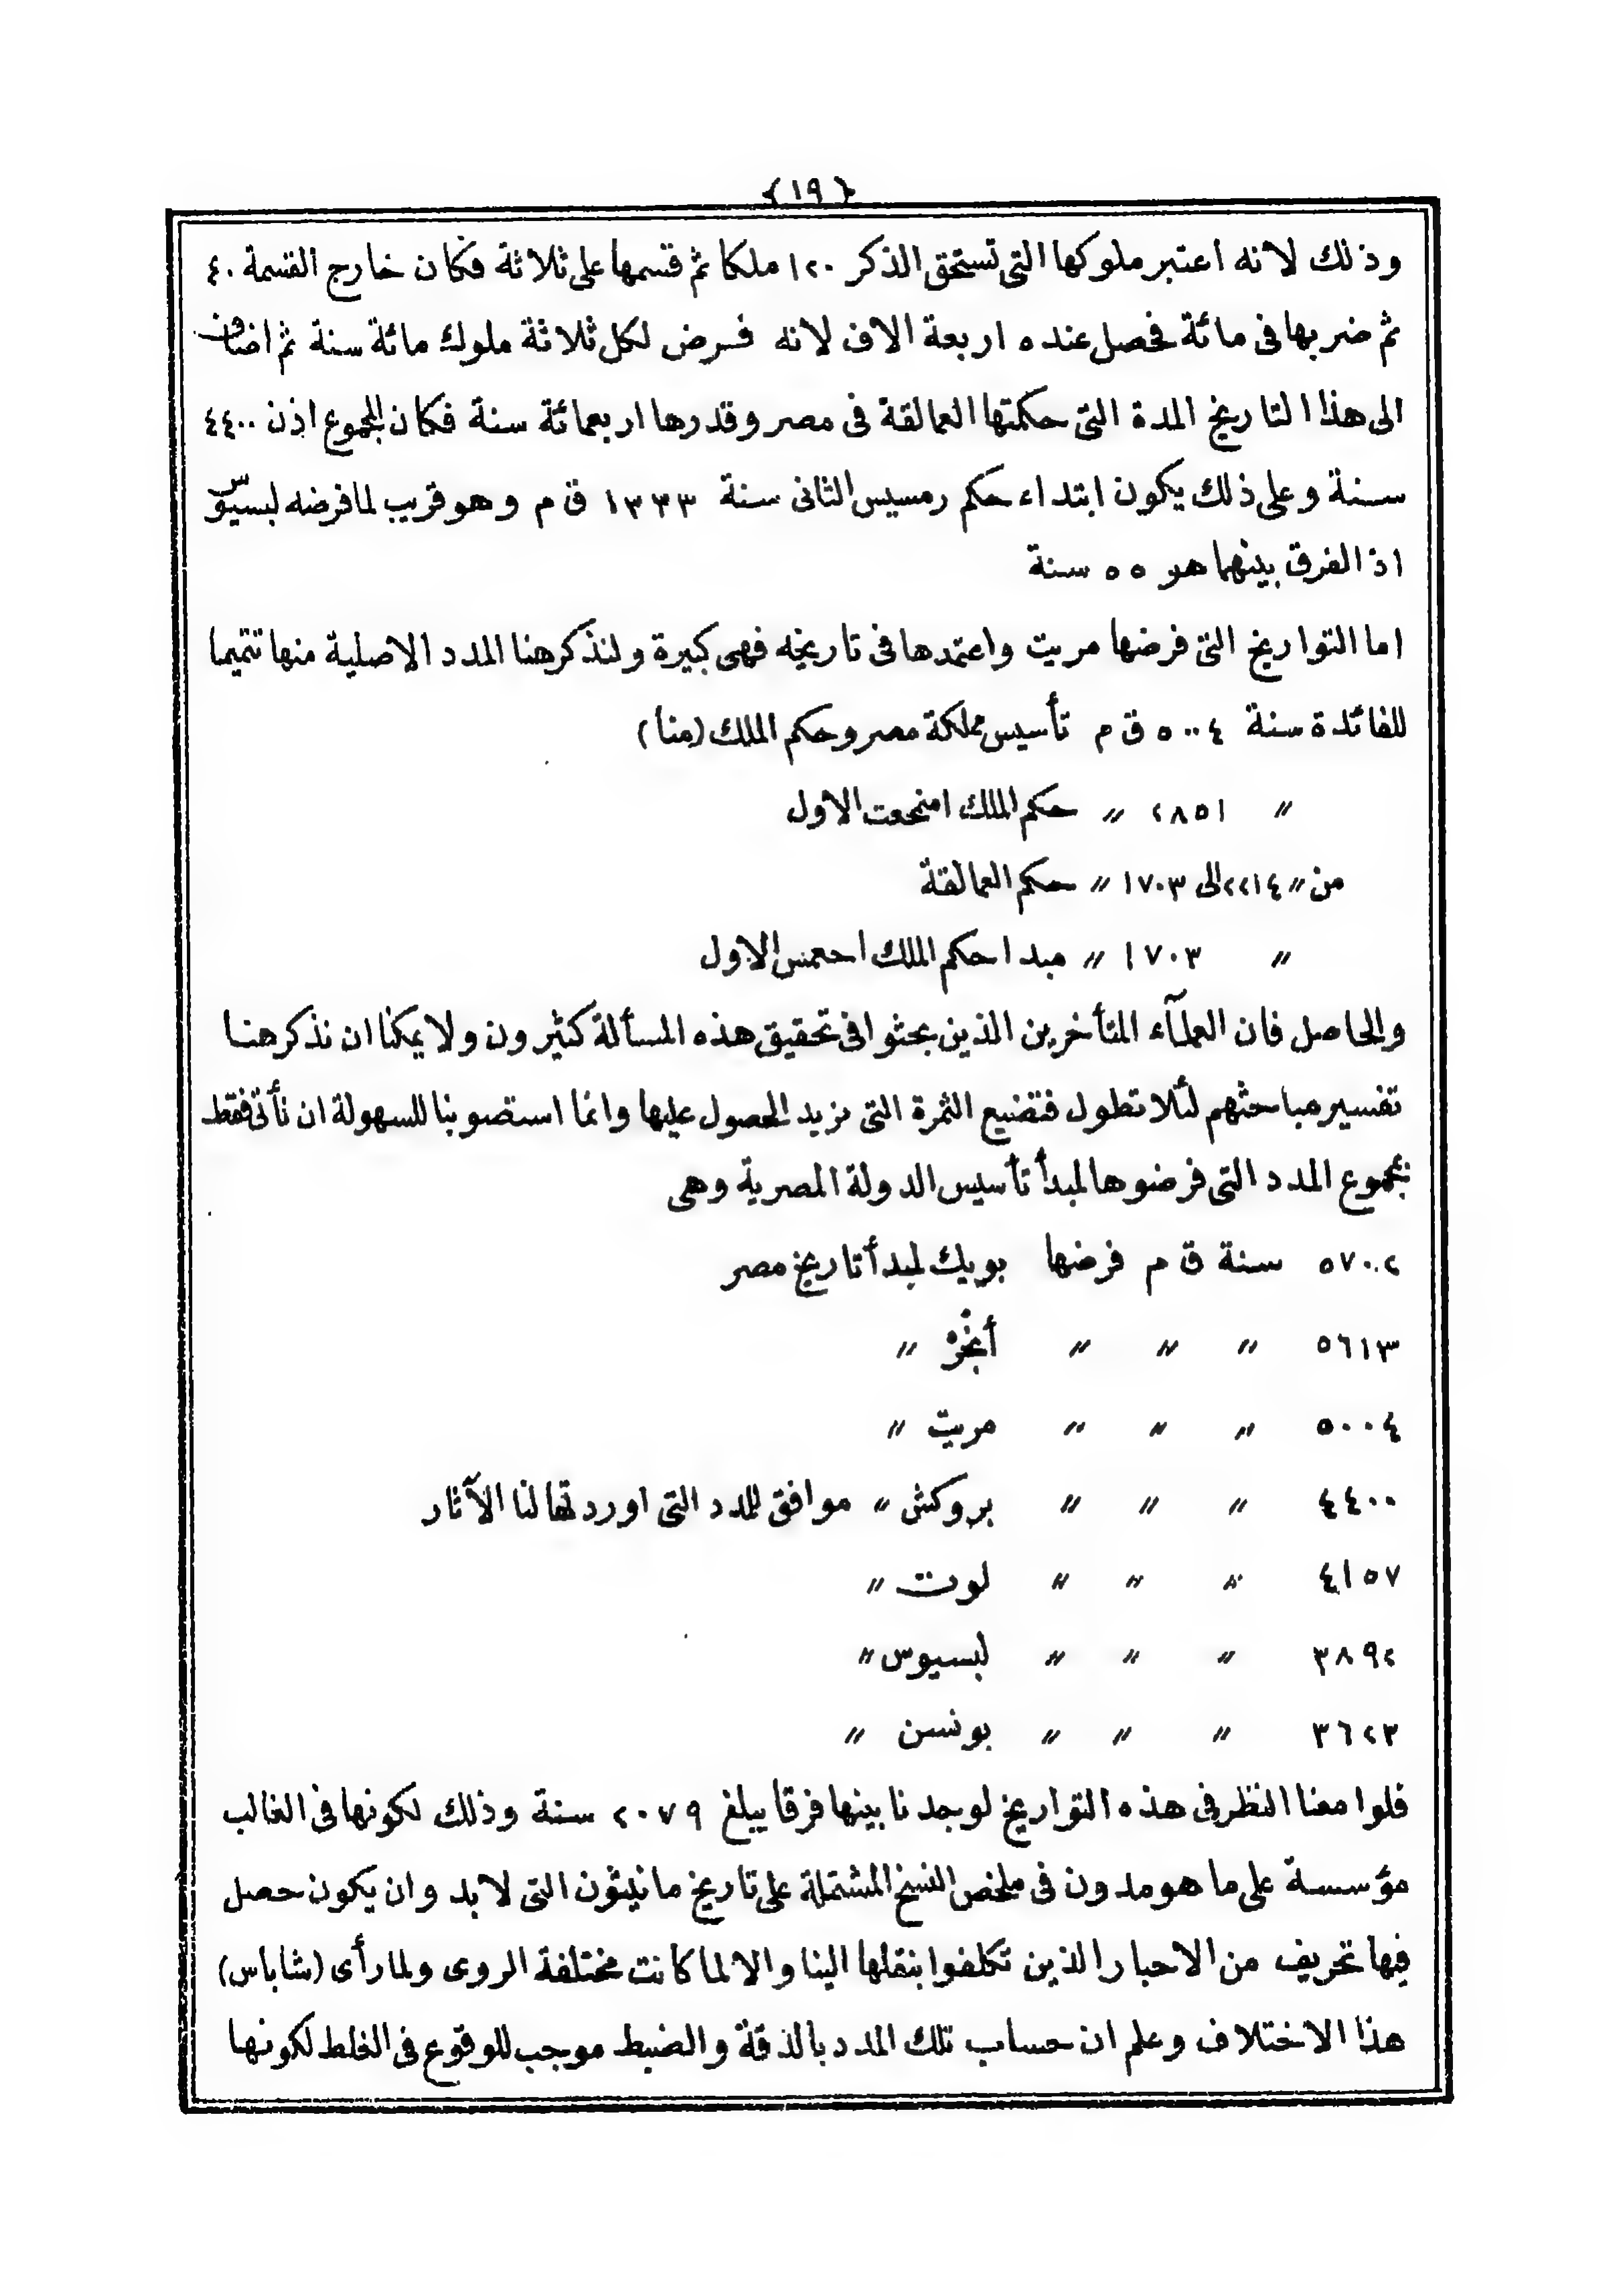 {١٩}
وذلك لانه اعتبر ملوكها التى تستحق الذكر ١٢٠ ملكا ثم قسمها على ثلاثة فكان خارج القسمة ٤٠
ثم ضربها فى مائة فحصل عنده اربعة الاف لانه فرض لكل ثلاثة ملوك مائة سنة ثم اضاف
الى هذا التاريخ المدة التى حكمتها العمالقة فى مصر وقدرها اربعمائة سنة فكان المجموع اذن ٤٤٠٠
سنة وعلى ذلك يكون ابتداء حكم رمسيس الثانى سنة ١٣٣٣ ق م وهو قريب لما فرضه لبسيوس
اذ الفرق بينهما هو ٥٥ سنة
اما التواريخ التى فرضها مريت واعتمدها فى تاريخه فهى كبيرة ولنذكر هنا المدد الاصلية منها تتميما
للفائدة سنة ٥٠٠٤ ق م تأسيس مملكة مصر وحكم الملك (منا)
〃 ٢٨٥١ 〃 حكم الملك امنمحعت الاول
من 〃 ٢٢١٤ الى ١٧٠٣ 〃 حكم العمالقة
〃 ١٧٠٣ 〃 مبدا حكم الملك احعمس الاول
والحاصل فان العلمآء المتأخرين الذين بحثوا فى تحقيق هذه المسألة كثيرون ولا يمكنا ان نذكر هنا
تفسير مباحثهم لئلا تطول فتضيع الثمرة التى نريد الحصول عليها وانما استصوبنا للسهولة ان نأتى فقط
بمجموع المدد التى فرضوها لمبدأ تأسيس الدولة المصرية وهى
٥٧٠٢ سنة ق م فرضها بويك لمبدأ تاريخ مصر
٥٦١٣ 〃 〃 〃 〃
٥٠٠٤ 〃 〃 〃 مريت 〃
٤٤٠٠ 〃 〃 〃 بروكش 〃 موافق للمدد التى اوردتها لنا الآثار
٤١٥٧ 〃 〃 〃 لوت 〃
٣٨٩٢ 〃 〃 〃 لبسيوس 〃
٣٦٢٣ 〃 〃 〃 بونسن 〃
فلوا معنا النظر فى هذه التواريخ لوجدنا بينها فرقا يبلغ ٢٠٧٩ سنة وذلك لكونها فى الغالب
مؤسسة على ما هو مدون فى ملخص النسخ المشتملة على تاريخ مانيثون التى لابد وان يكون حصل
فيها تحريف من الاحبار الذين تكلفوا بنقلها الينا والا لما كانت مختلفة الروى ولما رأى (شاباس)
هذا الاختلاف وعلم ان حساب تلك المدد بالدقة والضبط موجب للوقوع فى الغلط لكونها